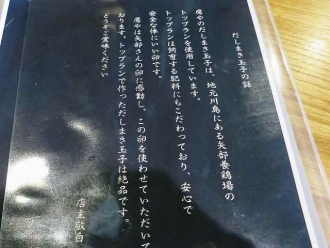 だしまき玉子の話
庵やのだしまき玉子は、地元川島にある矢部養鶏場の
トップランを使用しています。
トップランは飼育する肥料にもこだわっており、安心で
安全な体にいい卵です。
庵やは矢部さんの卵に感動し、この卵を使わせていただいて
おります。トップランで作っただしまき玉子は絶品です。
どうぞご賞味ください
店主敬白